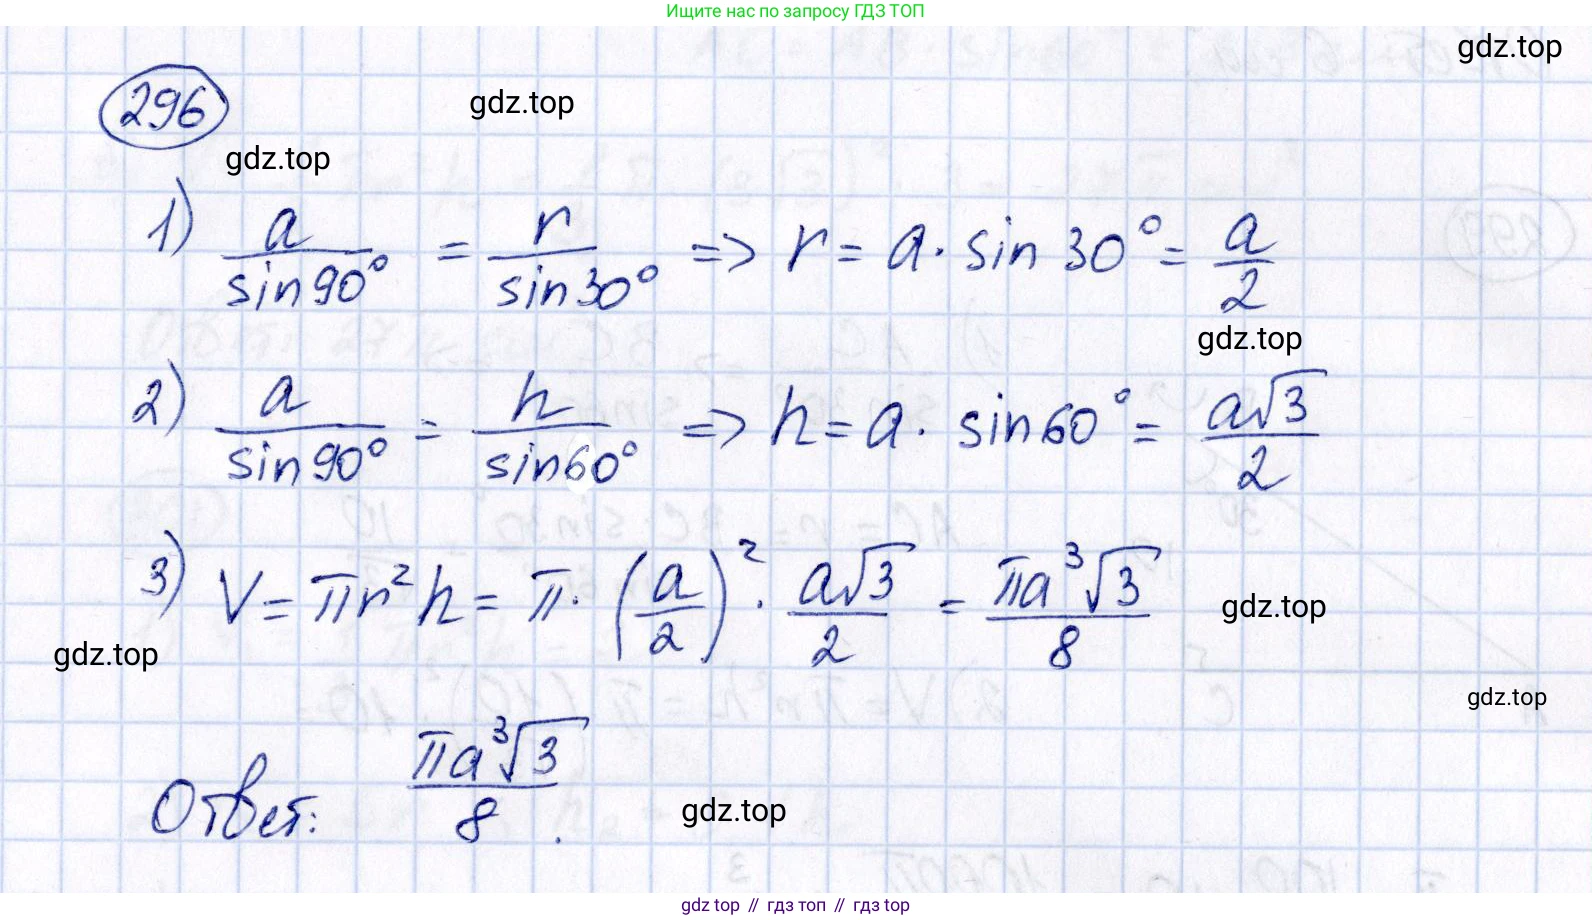 Ищите нас по запросу ГДЗ ТОП
gdz.top
296
gdz.top
gdz.top
1) a/sin90° = r/sin30° => r = a·sin30° = a/2
gdz.top
2) a/sin90° = h/sin60° => h = a·sin60° = a√3/2
3) V = πr²h = π·(a/2)²·a√3/2 = πa³√3/8
gdz.top
gdz.top
gdz.top
Ответ: πa³√3/8.
gdz.top
gdz top // гдз топ // гдз top